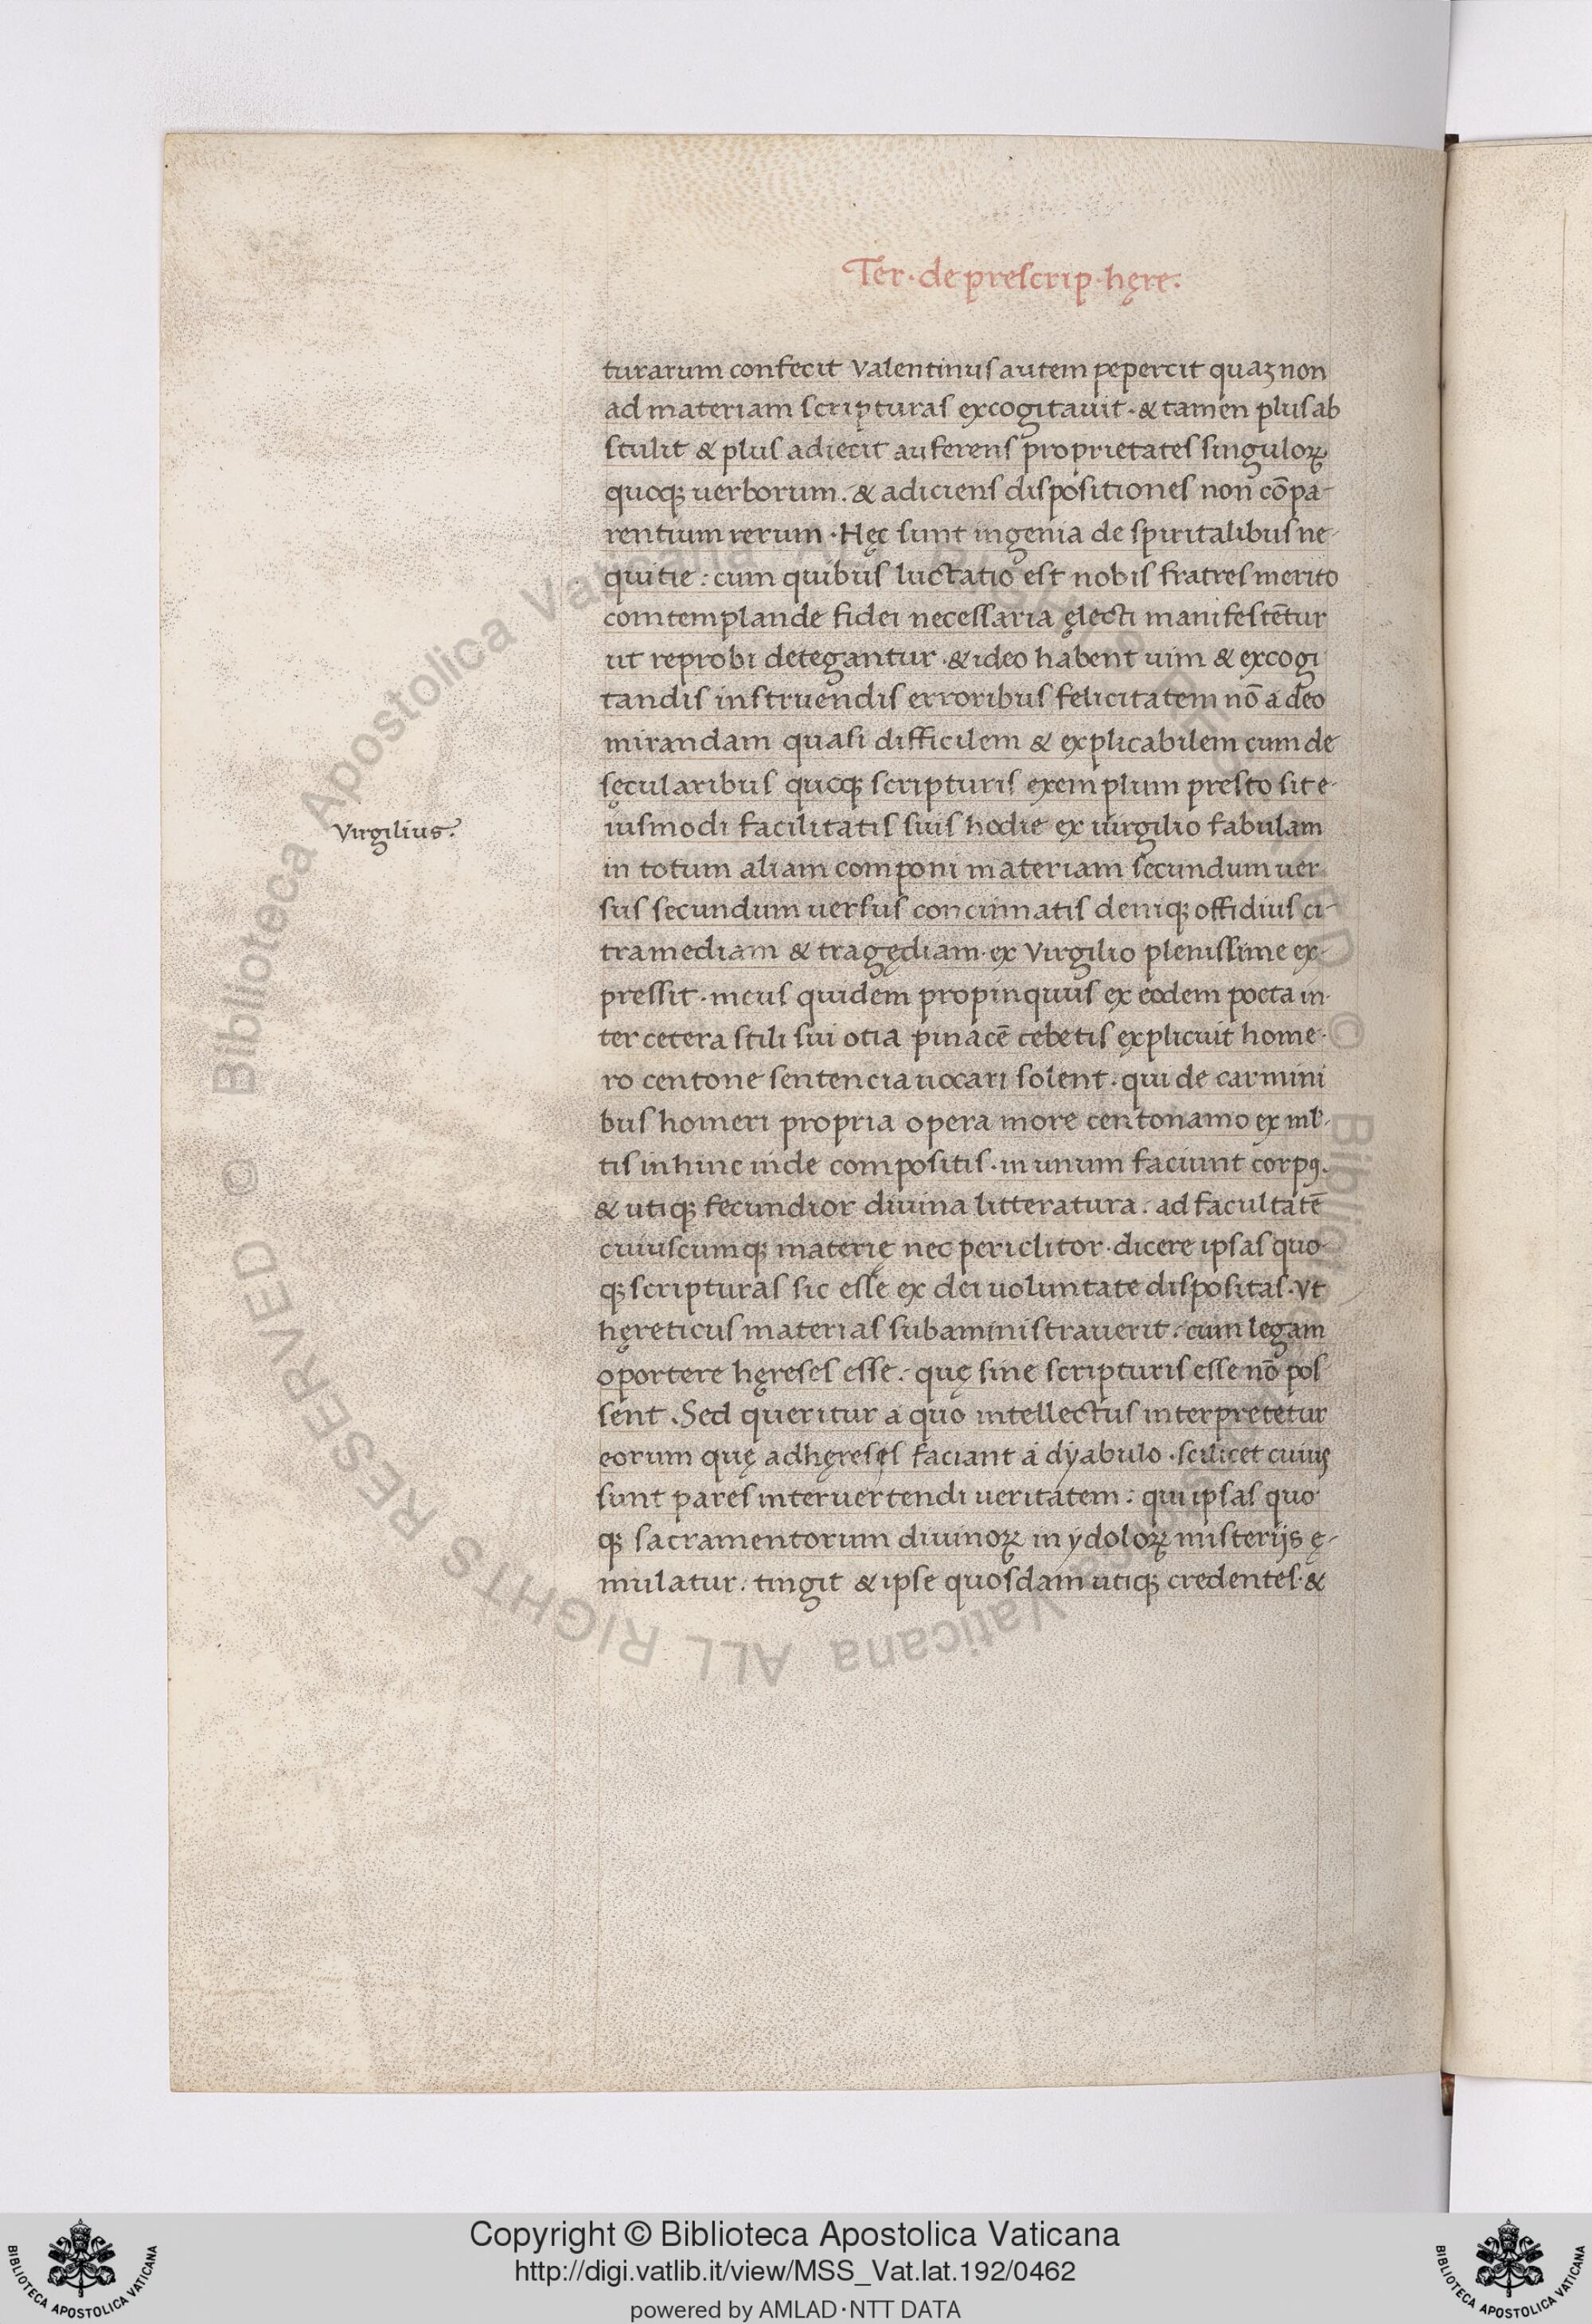 Ter · de prescrip · hęre.
turarum confecit Valentinus autem pepercit quaꝫ non
ad materiam scripturas excogitauit · & tamen plus ab
stulit & plus adiecit auferens proprietates singuloꝝ
quoqꝫ uerborum . & adiciens dispositiones non cōpa-
rentium rerum · Hęc sunt ingenia de spiritalibus ne-
quitie : cum quibus luctatio est nobis fratres merito
comtemplande fidei necessaria ęlecti manifestētur
ut reprobi detegantur · & ideo habent uim & excogi
tandis instruendis erroribus felicitatem nō a deo
mirandam quasi difficilem & explicabilem cum de
sęcularibus quoqꝫ scripturis exemplum presto sit e-
Virgilius.
iusmodi facilitatis suis hodie ex uirgilio fabulam
in totum aliam componi materiam secundum uer
sus secundum uersus concinnatis deniqꝫ offidius ci-
tramediam & tragędiam · ex Virgilio plenissime ex-
pressit · meus quidem propinquus ex eodem poeta in-
ter cetera stili sui otia pinacē cebetis explicuit home-
ro centone sentencia uocari solent . qui de carmini
bus homeri propria opera more centonamo ex ml'-
tis in hinc inde compositis · in unum faciunt corpꝰ.
& utiqꝫ fecundior diuina litteratura . ad facultatē
cuiuscumqꝫ materię nec periclitor · dicere ipsas quo-
qꝫ scripturas sic esse ex dei uoluntate dispositas · Vt
hęreticus materias subaministrauerit . cum legam
oportere hęreses esse . quę sine scripturis esse nō pos
sent . Sed queritur a quo intellectus interpretetur
eorum quę ad hęreses faciant a dyabulo · scilicet cuius
sunt pares interuertendi ueritatem : qui ipsas quo
qꝫ sacramentorum diuinoꝝ in ydoloꝝ misterijs ę-
mulatur . tingit & ipse quosdam utiqꝫ credentes · &
Copyright © Biblioteca Apostolica Vaticana
http://digi.vatlib.it/view/MSS_Vat.lat.192/0462
powered by AMLAD·NTT DATA
BIBLIOTECA APOSTOLICA VATICANA
BIBLIOTECA APOSTOLICA VATICANA
© Biblioteca Apostolica Vaticana ALL RIGHTS RESERVED © Biblioteca Apostolica Vaticana ALL RIGHTS RESERVED